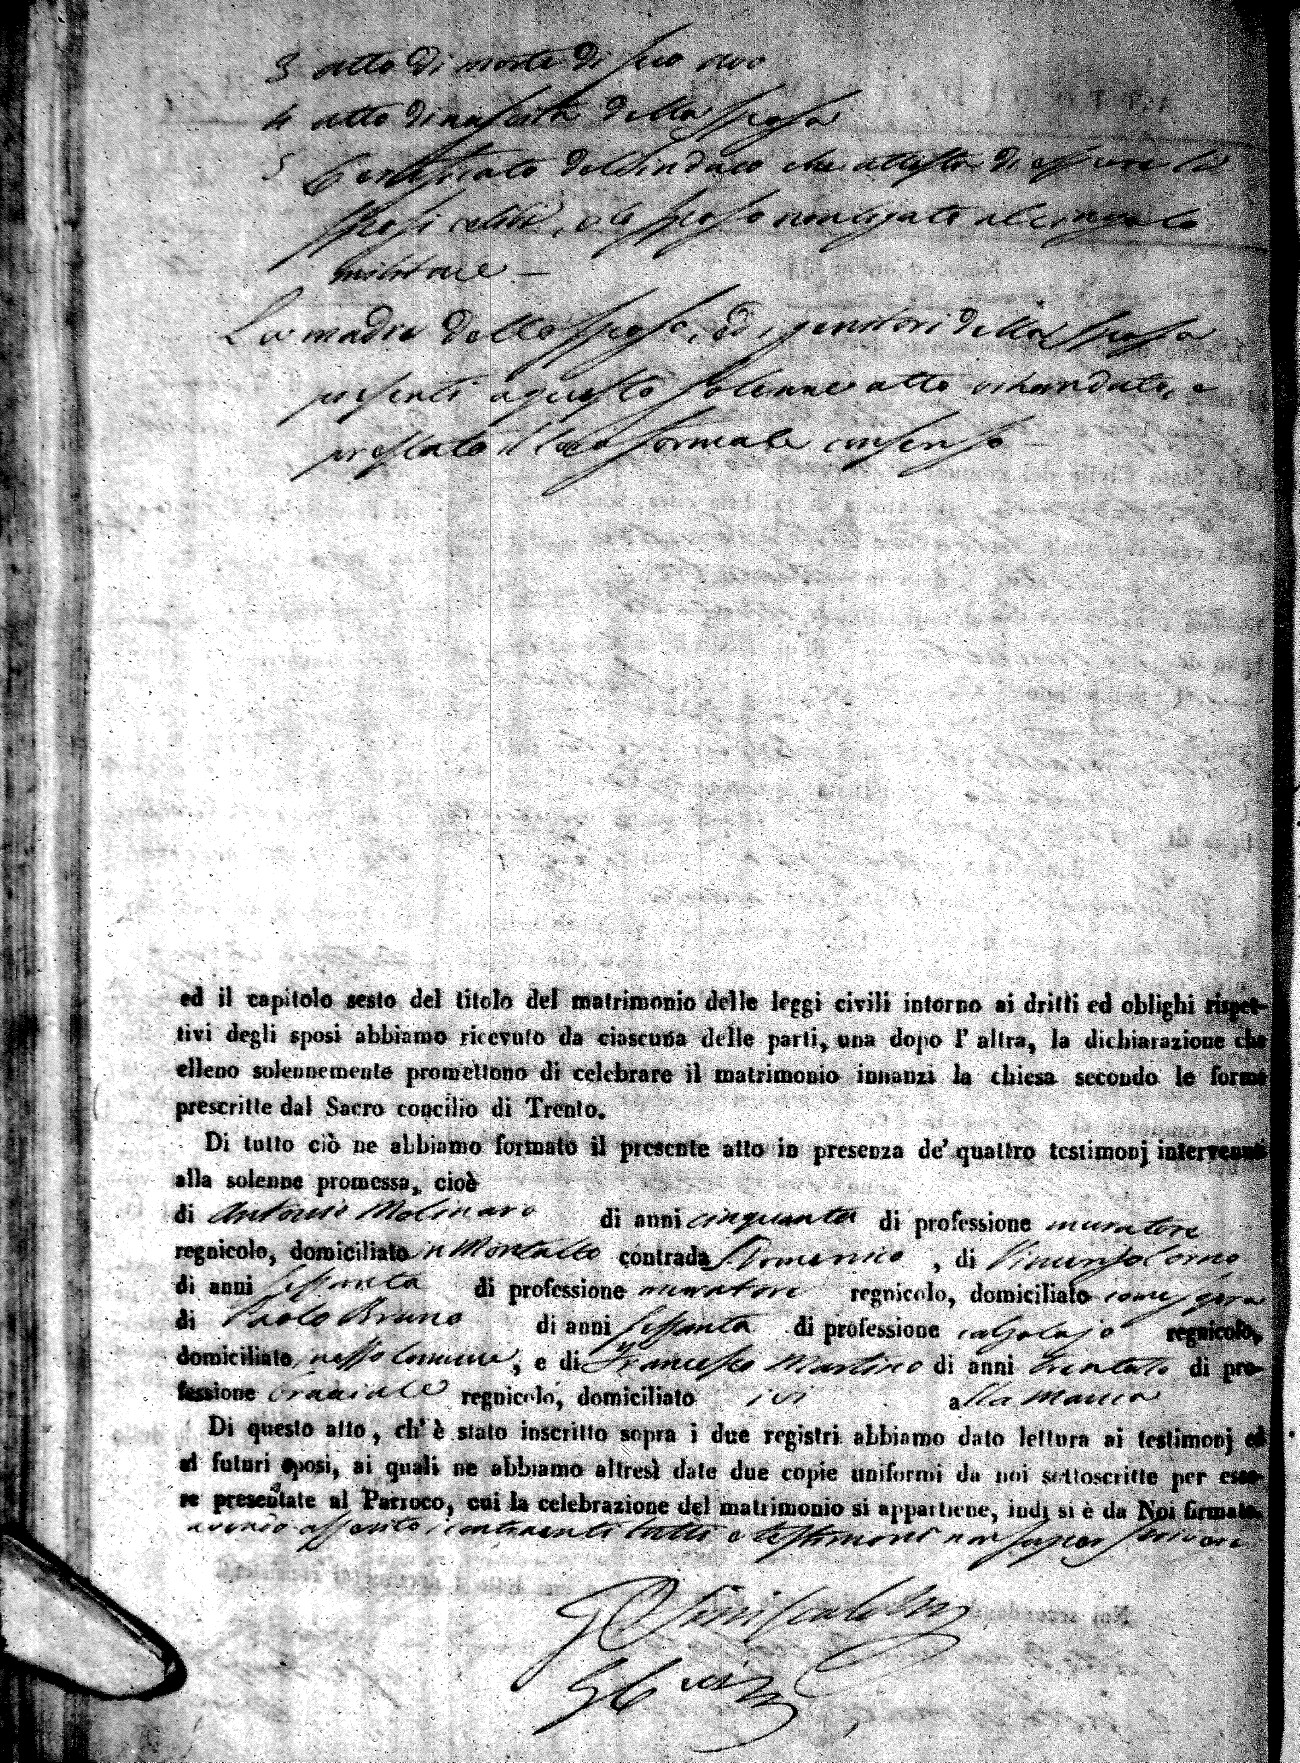 3 atto di morte di suo avo
4 atto di nascita della sposa
5 Certificato del Sindaco che attesta di essere li
sposi celibi, e lo sposo non ligato al cingolo
militare —
La madre dello sposo, ed i genitori della sposa
presenti a questo solenne atto hanno dato, e
prestato il loro formale consenso
ed il capitolo sesto del titolo del matrimonio delle leggi civili intorno ai dritti ed oblighi rispet-
tivi degli sposi abbiamo ricevuto da ciascuna delle parti, una dopo l' altra, la dichiarazione che
elleno solennemente promettono di celebrare il matrimonio innanzi la chiesa secondo le forme
prescritte dal Sacro concilio di Trento.
Di tutto ciò ne abbiamo formato il presente atto in presenza de' quattro testimonj intervenuti
alla solenne promessa, cioè
di Antonio Molinaro di anni cinquanta di professione muratore
regnicolo, domiciliato in Montalto contrada S. Domenico, di Vincenzo
di anni sessanta di professione muratore regnicolo, domiciliato come sopra
di Paolo Bruno di anni sessanta di professione calzolajo regnicolo,
domiciliato nesso Comune, e di Francesco Martino di anni trentatre di pro-
fessione bracciale regnicolo, domiciliato ivi alla
Di questo atto, ch' è stato inscritto sopra i due registri abbiamo dato lettura ai testimonj ed
ai futuri sposi, ai quali ne abbiamo altresì date due copie uniformi da noi sottoscritte per esse-
re presentate al Parroco, cui la celebrazione del matrimonio si appartiene, indi si è da Noi firmato
avendo asserito i contraenti tutti e testimoni non saper scrivere